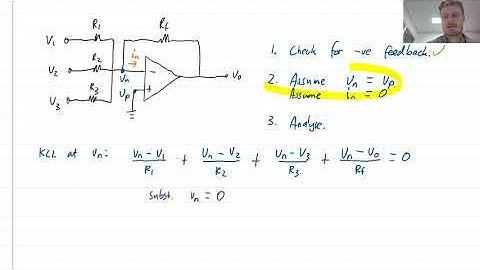 R₁
Rf
V₁
iₙ
R₂
Vₙ
V₂
−
V₀
Vₚ
+
R₃
V₃
1. Check for -ve feedback. ✓
2. Assume Vₙ = Vₚ
Assume iₙ = 0
3. Analyse.
KCL at Vₙ: (Vₙ − V₁)/R₁ + (Vₙ − V₂)/R₂ + (Vₙ − V₃)/R₃ + (Vₙ − V₀)/Rf = 0
subst. Vₙ = 0